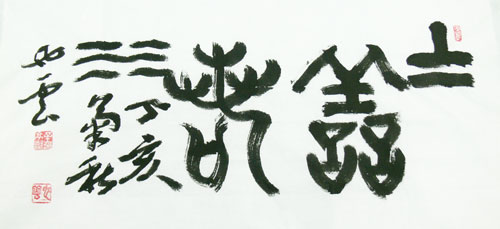 上善若水
丁亥
菊秋
如雲